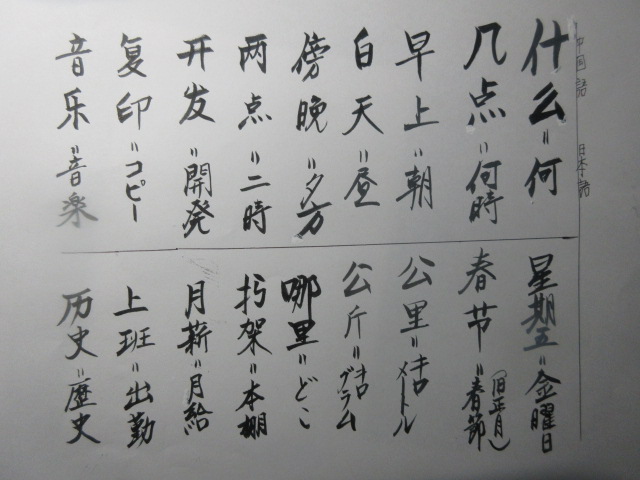 中国語 日本語
什么＝何
几点＝何時
早上＝朝
白天＝昼
傍晚＝夕方
两点＝二時
开发＝開発
复印＝コピー
音乐＝音楽
星期五＝金曜日
春节＝春節(旧正月)
公里＝キロメートル
公斤＝キログラム
哪里＝どこ
架＝本棚
月薪＝月給
上班＝出勤
历史＝歴史